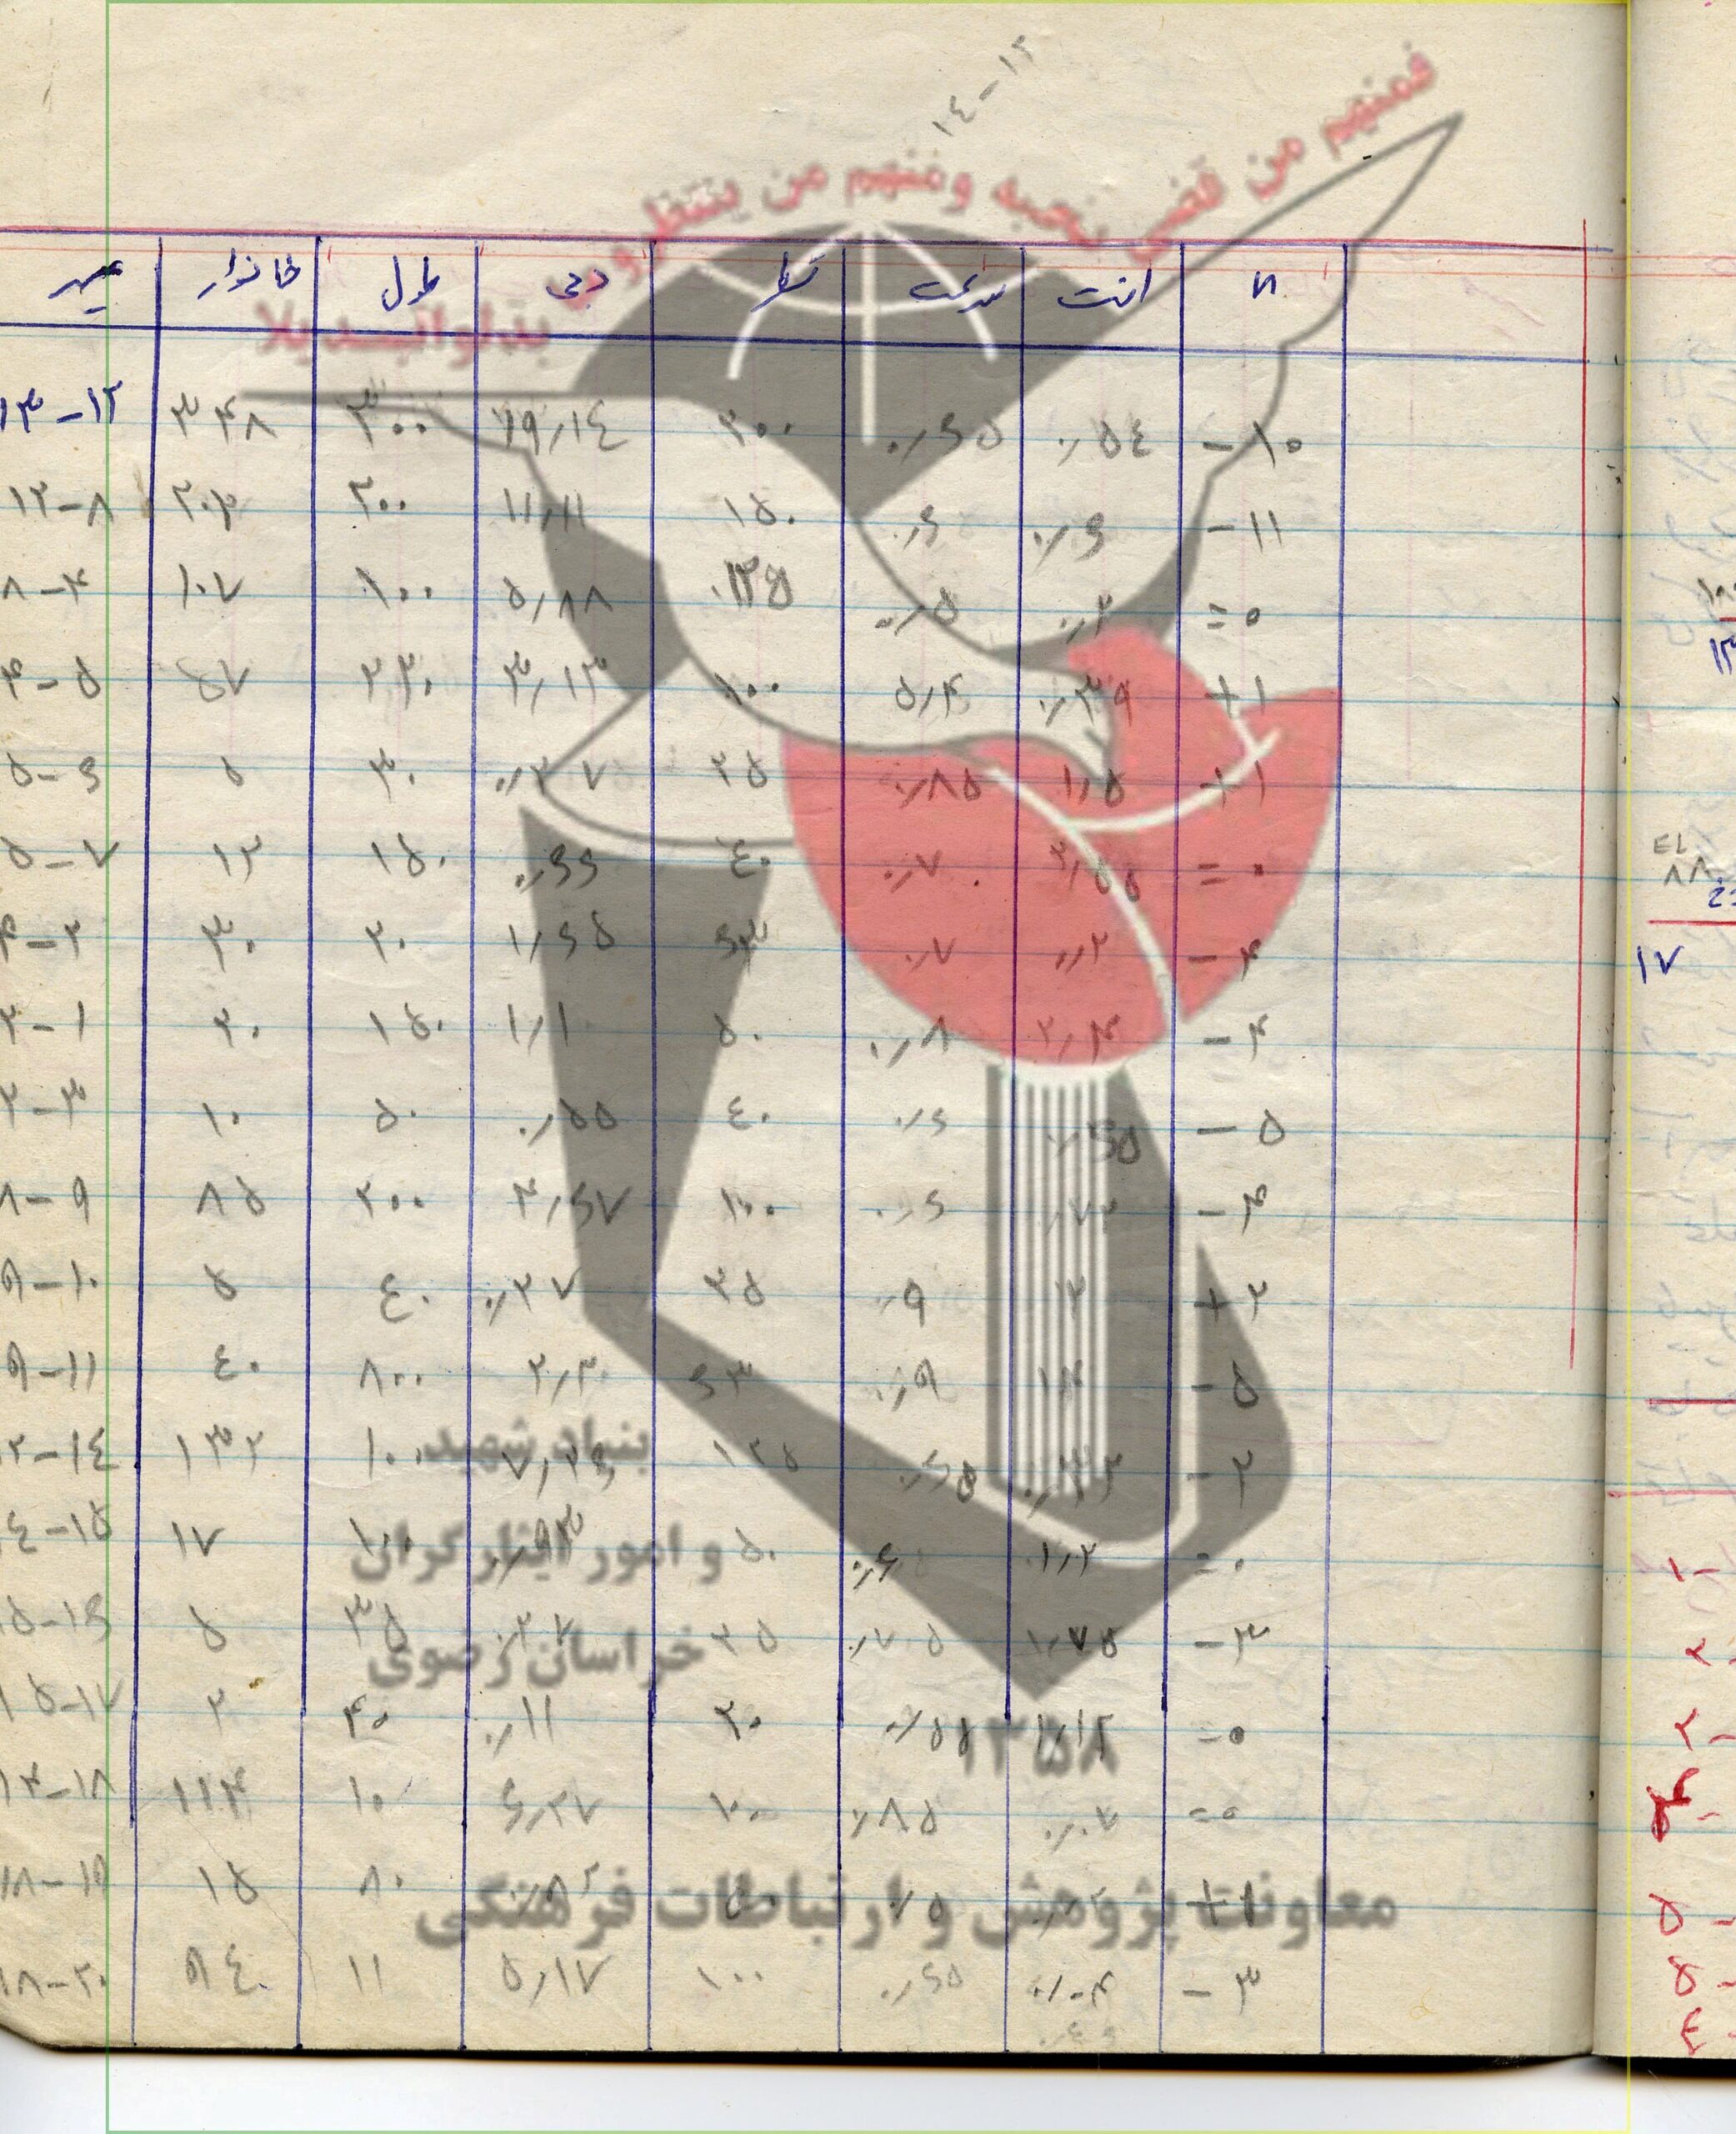 ۱۴-۱۲
فمنهم من قضی نحبه ومنهم من ینتظر و ما بدلوا تبدیلا
n افت سرعت قطر دبی طول خانوار مسیر
-۱۰ ۰/۵۴ ۰/۶۵ ۲۰۰ ۱۹/۱۴ ۳۰۰ ۳۴۸ ۱۳-۱۲
-۱۱ ۰/۶ ۰/۶ ۱۵۰ ۱۱/۱۱ ۲۰۰ ۲۰۲ ۱۲-۸
=۰ ۰/۳ ۰/۵ ۱۲۵ ۵/۸۸ ۱۰۰ ۱۰۷ ۸-۴
+۱ ۰/۳۹ ۵/۴ ۱۰۰ ۳/۱۳ ۲۲۰ ۵۷ ۴-۵
+۱ ۱/۵ ۰/۸۵ ۲۵ ۰/۲۷ ۳۰ ۵ ۵-۶
=۰ ۲/۵۵ ۰/۷ ۴۰ ۰/۶۶ ۱۵۰ ۱۲ ۵-۷
-۴ ۰/۲ ۰/۷ ۶۳ ۱/۶۵ ۲۰ ۳۰ ۴-۲
-۴ ۲/۴ ۰/۸ ۵۰ ۱/۱ ۱۵۰ ۲۰ ۲-۱
-۵ ۰/۶۵ ۰/۶ ۴۰ ۰/۵۵ ۵۰ ۱۰ ۲-۳
-۴ ۰/۷۲ ۰/۶ ۱۰۰ ۴/۶۷ ۲۰۰ ۸۵ ۸-۹
+۲ ۲ ۰/۹ ۲۵ ۰/۲۷ ۴۰ ۵ ۹-۱۰
-۵ ۱۲ ۰/۹ ۶۳ ۲/۲۰ ۸۰۰ ۴۰ ۹-۱۱
-۲ ۰/۲۳ ۰/۶۵ ۱۲۵ ۷/۲۶ ۱۰۰ ۱۳۲ ۲-۱۴
بنیاد شهید
=۰ ۱/۲ ۰/۶ ۵۰ ۰/۹۳ ۱۰۰ ۱۷ ۴-۱۵
و امور ایثارگران
-۳ ۱/۷۵ ۰/۷۵ ۲۵ ۰/۲۷ ۳۵ ۵ ۵-۱۶
خراسان رضوی
=۰ ۱/۱۲ ۰/۵۵ ۲۰ ۰/۱۱ ۴۰ ۲ ۱۵-۱۷
۱۳۵۸
=۰ ۰/۰۷ ۰/۸۵ ۲۰۰ ۶/۲۷ ۱۰ ۱۱۴ ۱۴-۱۸
+۱ ۸۰ ۱۵ ۱۸-۱۹
معاونت پژوهش و ارتباطات فرهنگی
-۳ ۰/۰۴ ۰/۶۵ ۱۰۰ ۵/۱۷ ۱۱ ۹۴ ۱۸-۲۰
۱۷